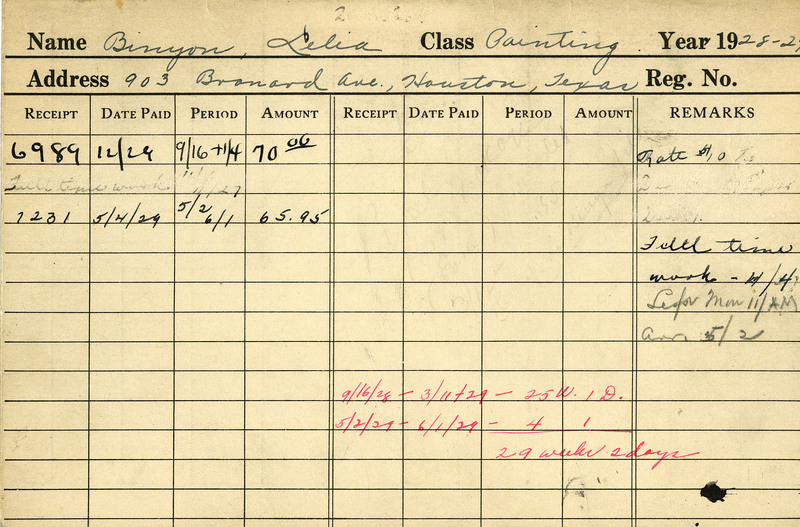 Name Binyon, Lelia Class Painting Year 1928-29
Address 903 Branard Ave., Houston, Texas Reg. No.
RECEIPT DATE PAID PERIOD AMOUNT RECEIPT DATE PAID PERIOD AMOUNT REMARKS
6989 12/29 9/16 + 1/4 70 00 Rate $10
Full time work
7231 5/4/29 5/2 6/1 65.95
Full time
work - 4/4
Mon 11/
5/2
9/16/28 - 3/11/29 - 25 W. 1 D.
5/2/29 - 6/1/29 - 4 1
29 weeks 2 days